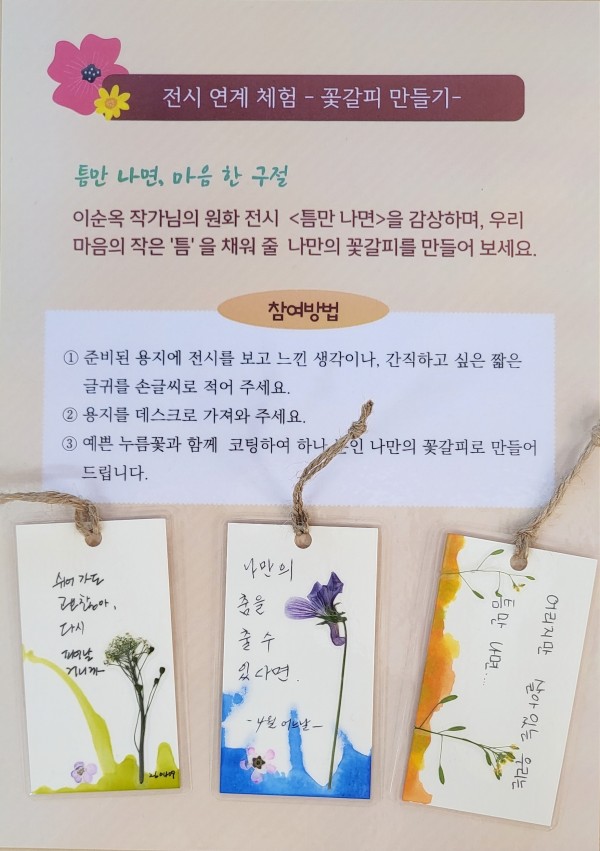 전시 연계 체험 - 꽃갈피 만들기-
틈만 나면, 마음 한 구절
이순옥 작가님의 원화 전시 <틈만 나면>을 감상하며, 우리
마음의 작은 '틈' 을 채워 줄 나만의 꽃갈피를 만들어 보세요.
참여방법
① 준비된 용지에 전시를 보고 느낀 생각이나, 간직하고 싶은 짧은
글귀를 손글씨로 적어 주세요.
② 용지를 데스크로 가져와 주세요.
③ 예쁜 누름꽃과 함께 코팅하여 하나 뿐인 나만의 꽃갈피로 만들어
드립니다.
쉬어 가도
괜찮아,
다시
피어날
거니까
나만의
춤을
출 수
있다면.
-4월 어느날-
여리지만 살아 있는 우리는
틈만 나면...